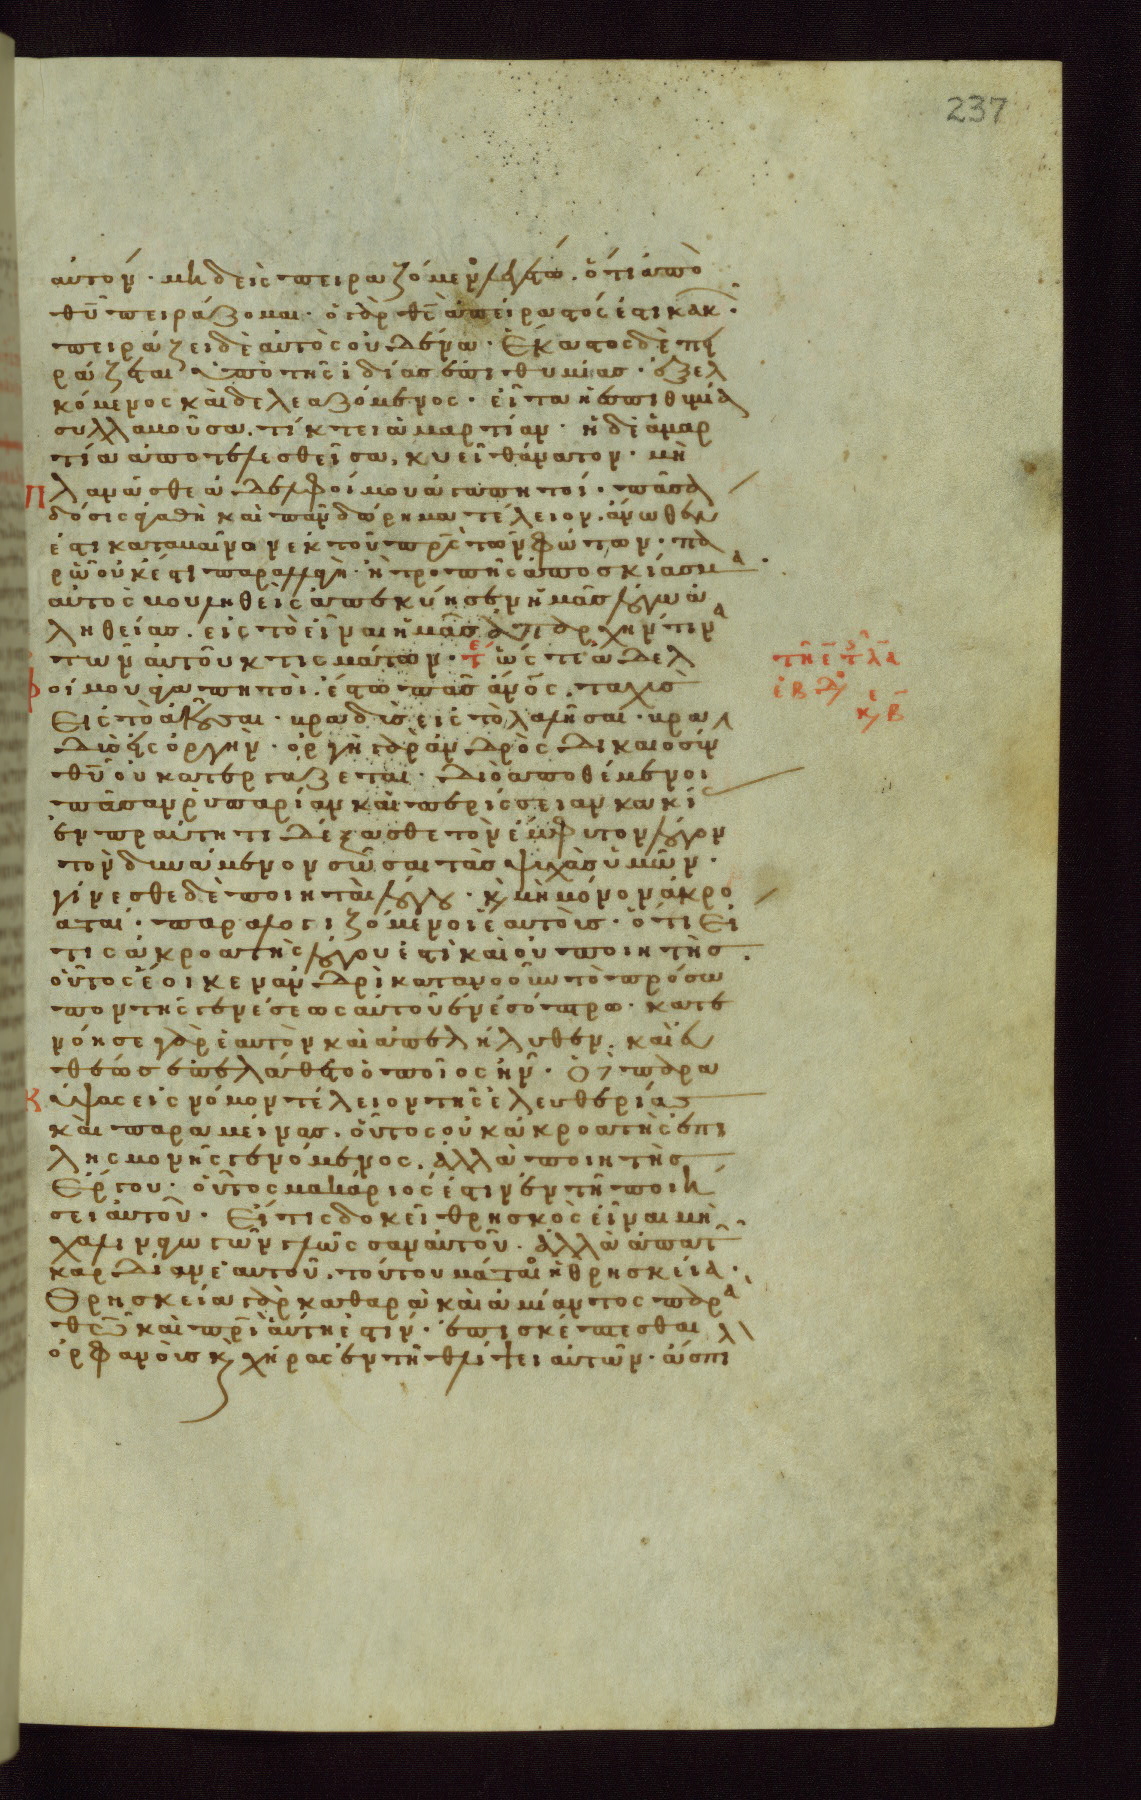 237
αὐτόν · μηδεὶς πειραζόμενος λεγέτω · ὅτι ἀπὸ
θυ πειράζομαι · ὁ γὰρ θς ἀπείραστός ἐστι κακῶν ·
πειράζει δὲ αὐτὸς οὐδένα · ἕκαστος δὲ πει
ράζεται ὑπὸ τῆς ἰδίας ἐπιθυμίας · ἐξελ
κόμενος καὶ δελεαζόμενος · εἶτα ἡ ἐπιθυμία
συλλαβοῦσα, τίκτει ἁμαρτίαν · ἡ δὲ ἁμαρ
τία ἀποτελεσθεῖσα, κυεῖ θάνατον · μὴ
πλανᾶσθε ἀδελφοί μου ἀγαπητοί · πᾶσα
δόσις ἀγαθὴ καὶ πᾶν δώρημα τέλειον, ἄνωθέν
ἐστι καταβαῖνον ἐκ τοῦ πρς τῶν φώτων · πα
ρ ὧ οὐκ ἔστι παραλλαγὴ · ἢ τροπῆς ἀποσκίασμα ·
αὐτὸς βουληθεὶς ἀπεκύησεν ἡμᾶς λόγω ἀ
ληθείας · εἰς τὸ εἶναι ἡμᾶς ἀπαρχήν τινα
τῶν αὐτοῦ κτισμάτων · τε ὥστε ἀδελ
φοί μου ἀγαπητοὶ · ἔστω πᾶς ἄνος · ταχὺς
εἰς τὸ ἀκοῦσαι · βραδὺς εἰς τὸ λαλῆσαι · βρα
δὺς εἰς ὀργήν · ὀργὴ γὰρ ἀνδρὸς δικαιοσύνην
θυ οὐ κατεργάζεται · διὸ ἀποθέμενοι
πᾶσαν ῥυπαρίαν καὶ περισσείαν κακί
ἐν πραΰτητι δέξασθε τὸν ἔμφυτον λόγον
τὸν δυνάμενον σῶσαι τὰς ψυχὰς ὑμῶν ·
γίνεσθε δὲ ποιηταὶ λόγου · κ μὴ μόνον ἀκρο
αταί · παραλογιζόμενοι ἑαυτοὺς · ὅτι εἴ
τις ἀκροατὴς λόγου ἐστὶ καὶ οὐ ποιητὴς
οὗτος ἔοικεν ἀνδρὶ κατανοοῦντι τὸ πρόσω
πον τῆς γενέσεως αὐτοῦ ἐν ἐσόπτρω · κατε
νόησε γὰρ ἑαυτὸν καὶ ἀπελήλυθεν · καὶ εὐ
θέως ἐπελάθετο ὁποῖος ἦν · ὁ δὲ παρα
κύψας εἰς νόμον τέλειον τῆς ἐλευθερίας
καὶ παραμείνας · οὗτος οὐκ ἀκροατὴς ἐπι
λησμονῆς γενόμενος · ἀλλὰ ποιητὴς
ἔργου · οὗτος μακάριός ἐστιν ἐν τῆ ποιή
σει αὐτοῦ · εἴ τις δοκεῖ θρησκὸς εἶναι μὴ
χαλιναγωγῶν γλῶσσαν αὐτοῦ · ἀλλὰ ἀπατῶν
καρδίαν ἑαυτοῦ · τούτου μάταιος ἡ θρησκεία ·
θρησκεία γὰρ καθαρὰ καὶ ἀμίαντος παρὰ
θεῶ καὶ πρι αὕτη ἐστίν · ἐπισκέπτεσθαι
ὀρφανοὺς κ χήρας ἐν τῆ θλίψει αὐτῶν · ἄσπι